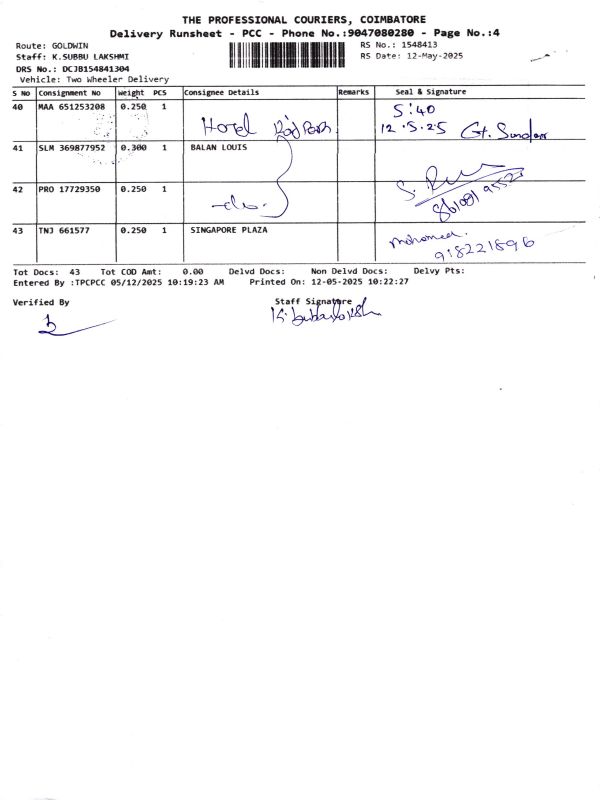 THE PROFESSIONAL COURIERS, COIMBATORE
Delivery Runsheet - PCC - Phone No.:9047080280 - Page No.:4
Route: GOLDWIN RS No.: 1548413
Staff: K.SUBBU LAKSHMI RS Date: 12-May-2025
DRS No.: DCJB154841304
Vehicle: Two Wheeler Delivery
S No Consignment No Weight PCS Consignee Details Remarks Seal & Signature
40 MAA 651253208 0.250 1 Hotel 5:40
12.5.25 Gt. Sundar
41 SLM 369877952 0.300 1 BALAN LOUIS
42 PRO 17729350 0.250 1 -do-
43 TNJ 661577 0.250 1 SINGAPORE PLAZA Mohamed.
918221896
Tot Docs: 43 Tot COD Amt: 0.00 Delvd Docs: Non Delvd Docs: Delvy Pts:
Entered By :TPCPCC 05/12/2025 10:19:23 AM Printed On: 12-05-2025 10:22:27
Verified By Staff Signature